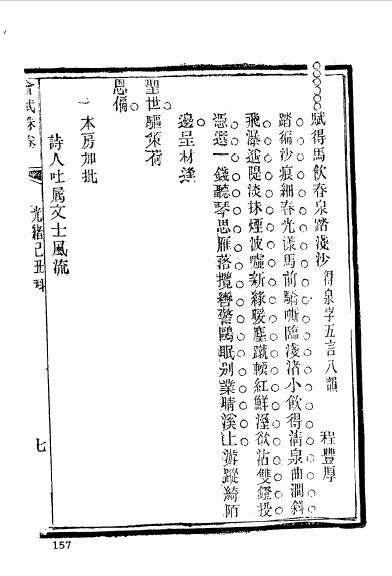 賦得馬飲春泉踏淺沙 得泉字五言八韻 程豐厚
踏徧沙痕細春光漾馬前驕嘶臨淺渚小飲得清泉曲澗斜
飛瀑遙隄淡抹煙波噓新綠暖塵蹴輭紅鮮溼欲沾雙鐙投
憑選一錢聽琴思雁落攬轡警鷗眠别業晴溪上游蹤綺陌
邊呈材逢
聖世驅策荷
恩偏
一本房加批
詩人吐属文士風流
會試硃卷 光緒己丑科 七
157